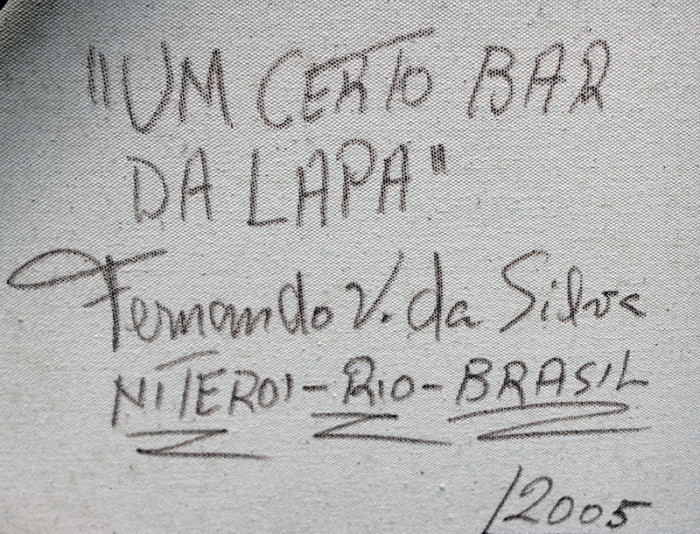 "UM CERTO BAR
DA LAPA"
Fernando V. da Silva
NITEROI - RIO - BRASIL
/2005